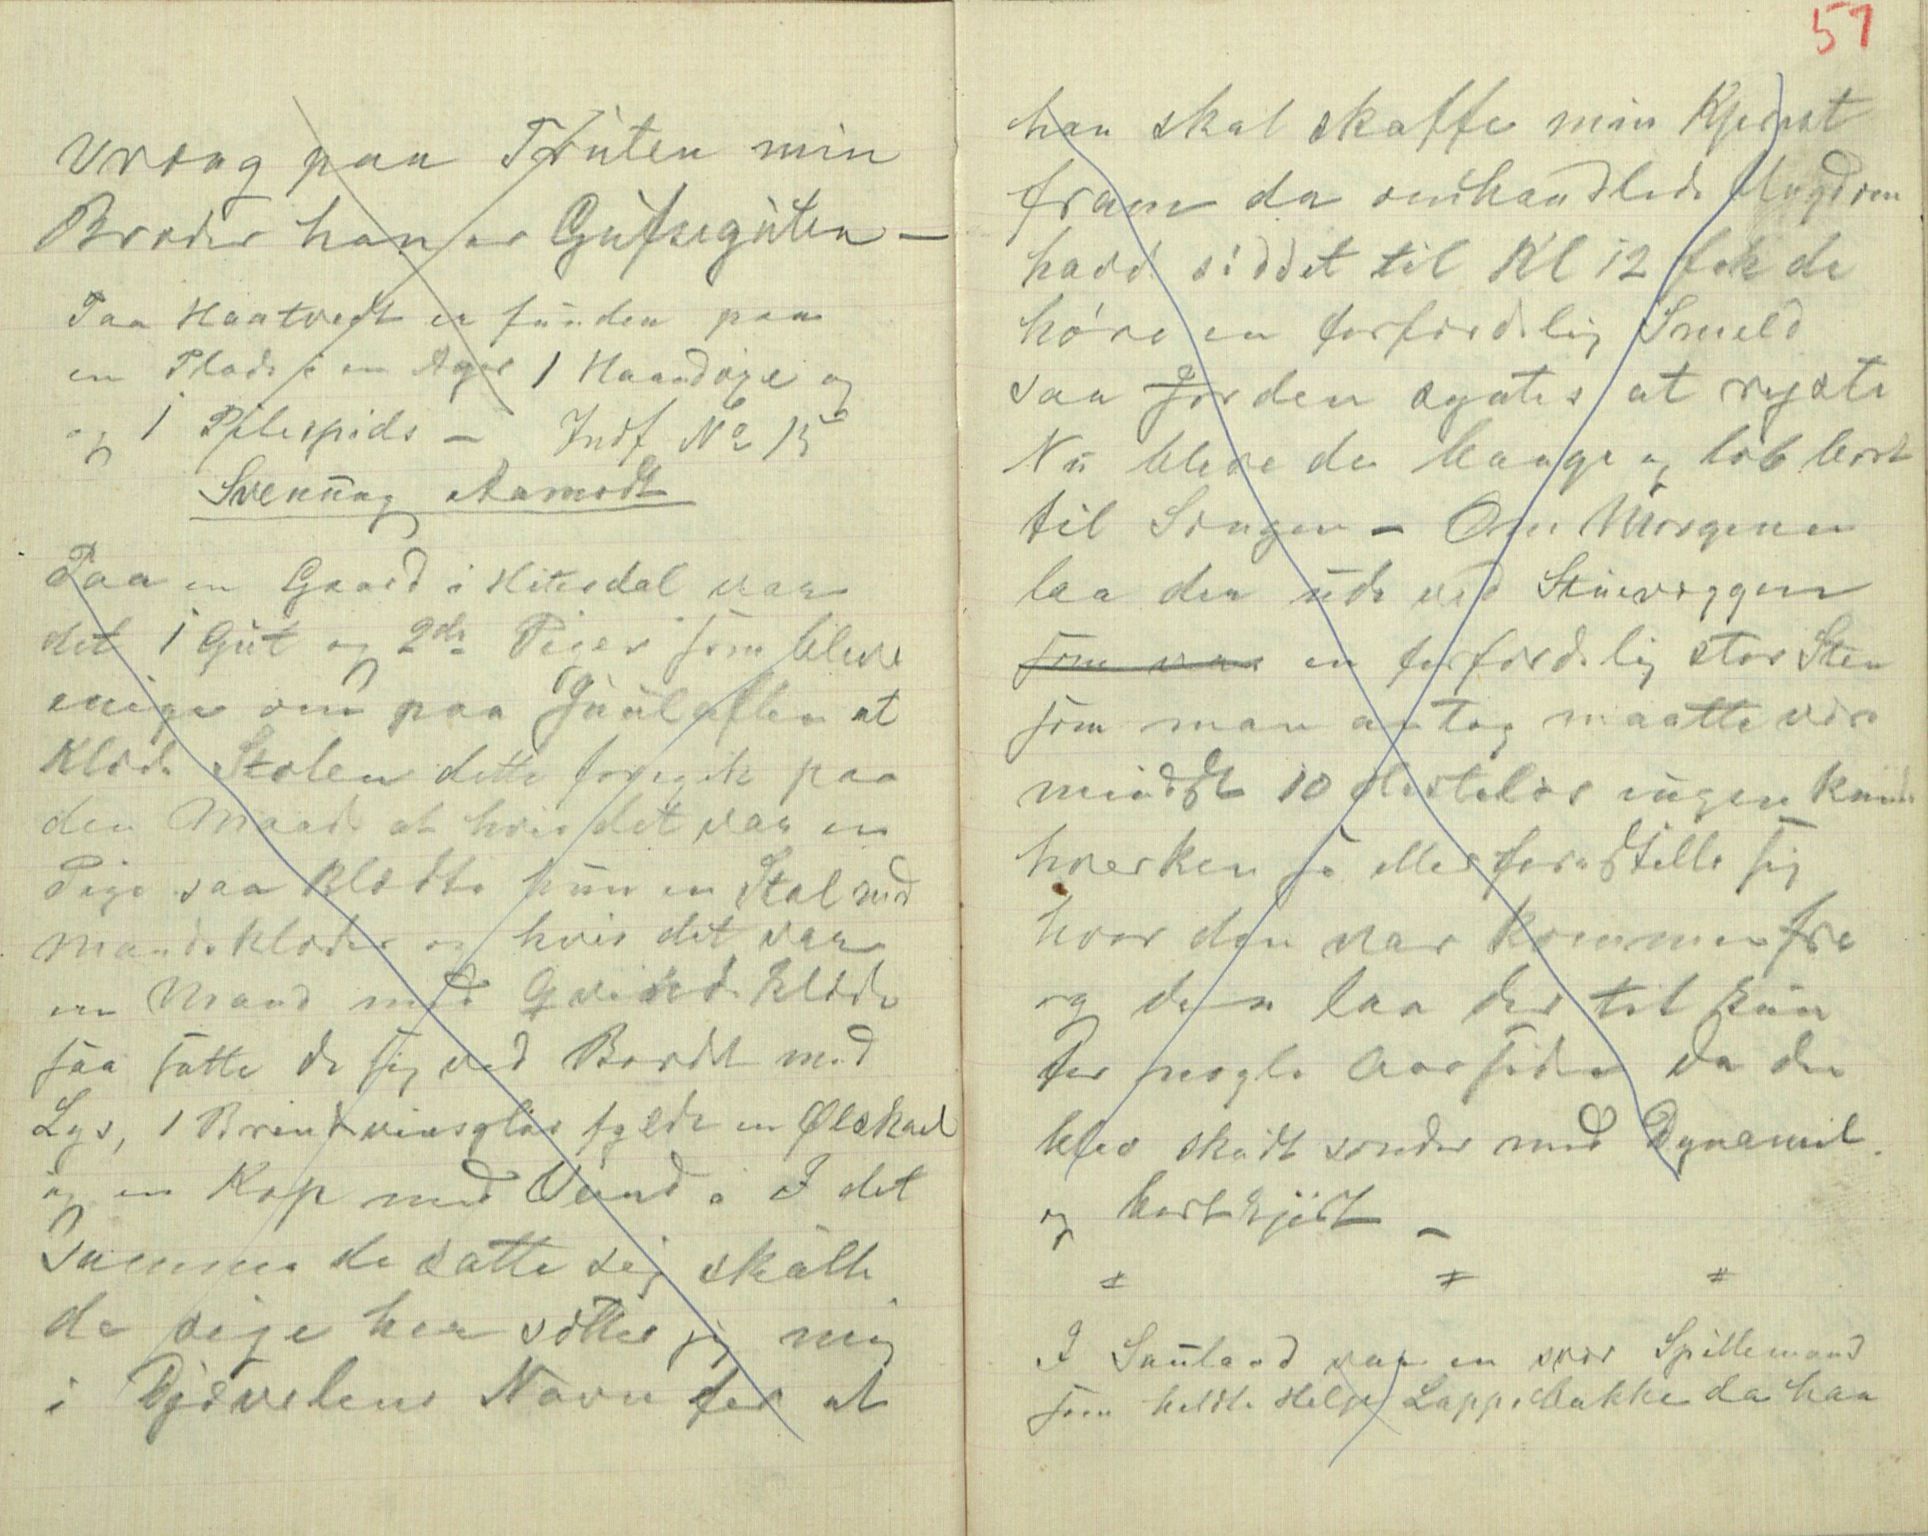 vrang paa Truten min
Broder han er Gufsegüten —
Paa Haatvedt er funden paa
en Plads i en Ager 1 Haandøxe og
og 1 Pilespids — Indf No 15
Svenūng Aamodt
Paa en Gaard i Hiterdal var
det 1 Gūt og 2de Piger som bleve
enige om paa Juulaften at
Klæde Stolen dette foregik paa
den Maade at hvis det var en
Pige saa Klædte hun en Stol med
Mandsklæder og hvis det var
en Mand med Qvindeklæder
saa satte de sig ved Bordet med
Lys, 1 Brendvinsglas fyldt en Ølskael
og en Kop med Vand. I det
Samme de satte sig skulle
de sige her sætter jeg mig
i Djævelens Navn for at
51
han skal skaffe min Kjærest
fram da omhandlede Ungdom
havde siddet til Kl 12 fik de
høre en forfærdelig Smeld
saa Jorden syntes at ryste
Nu bleve de bange og løb bort
til Sengen — Om Morgenen
laa der ude ved Stuevæggen
som var en forfærdelig stor Sten
som man antog maatte være
mindst 10 Hestelæs ingen kunde
hverken se eller forestille sig
hvor den var kommen fra
og den laa der til kun
for nogle Aar siden da den
blev skudt sønder med Dynamit.
og bortkjørt —
# # #
I Sauland var en svær Spillemand
som heldte Helge Lappebakke da han